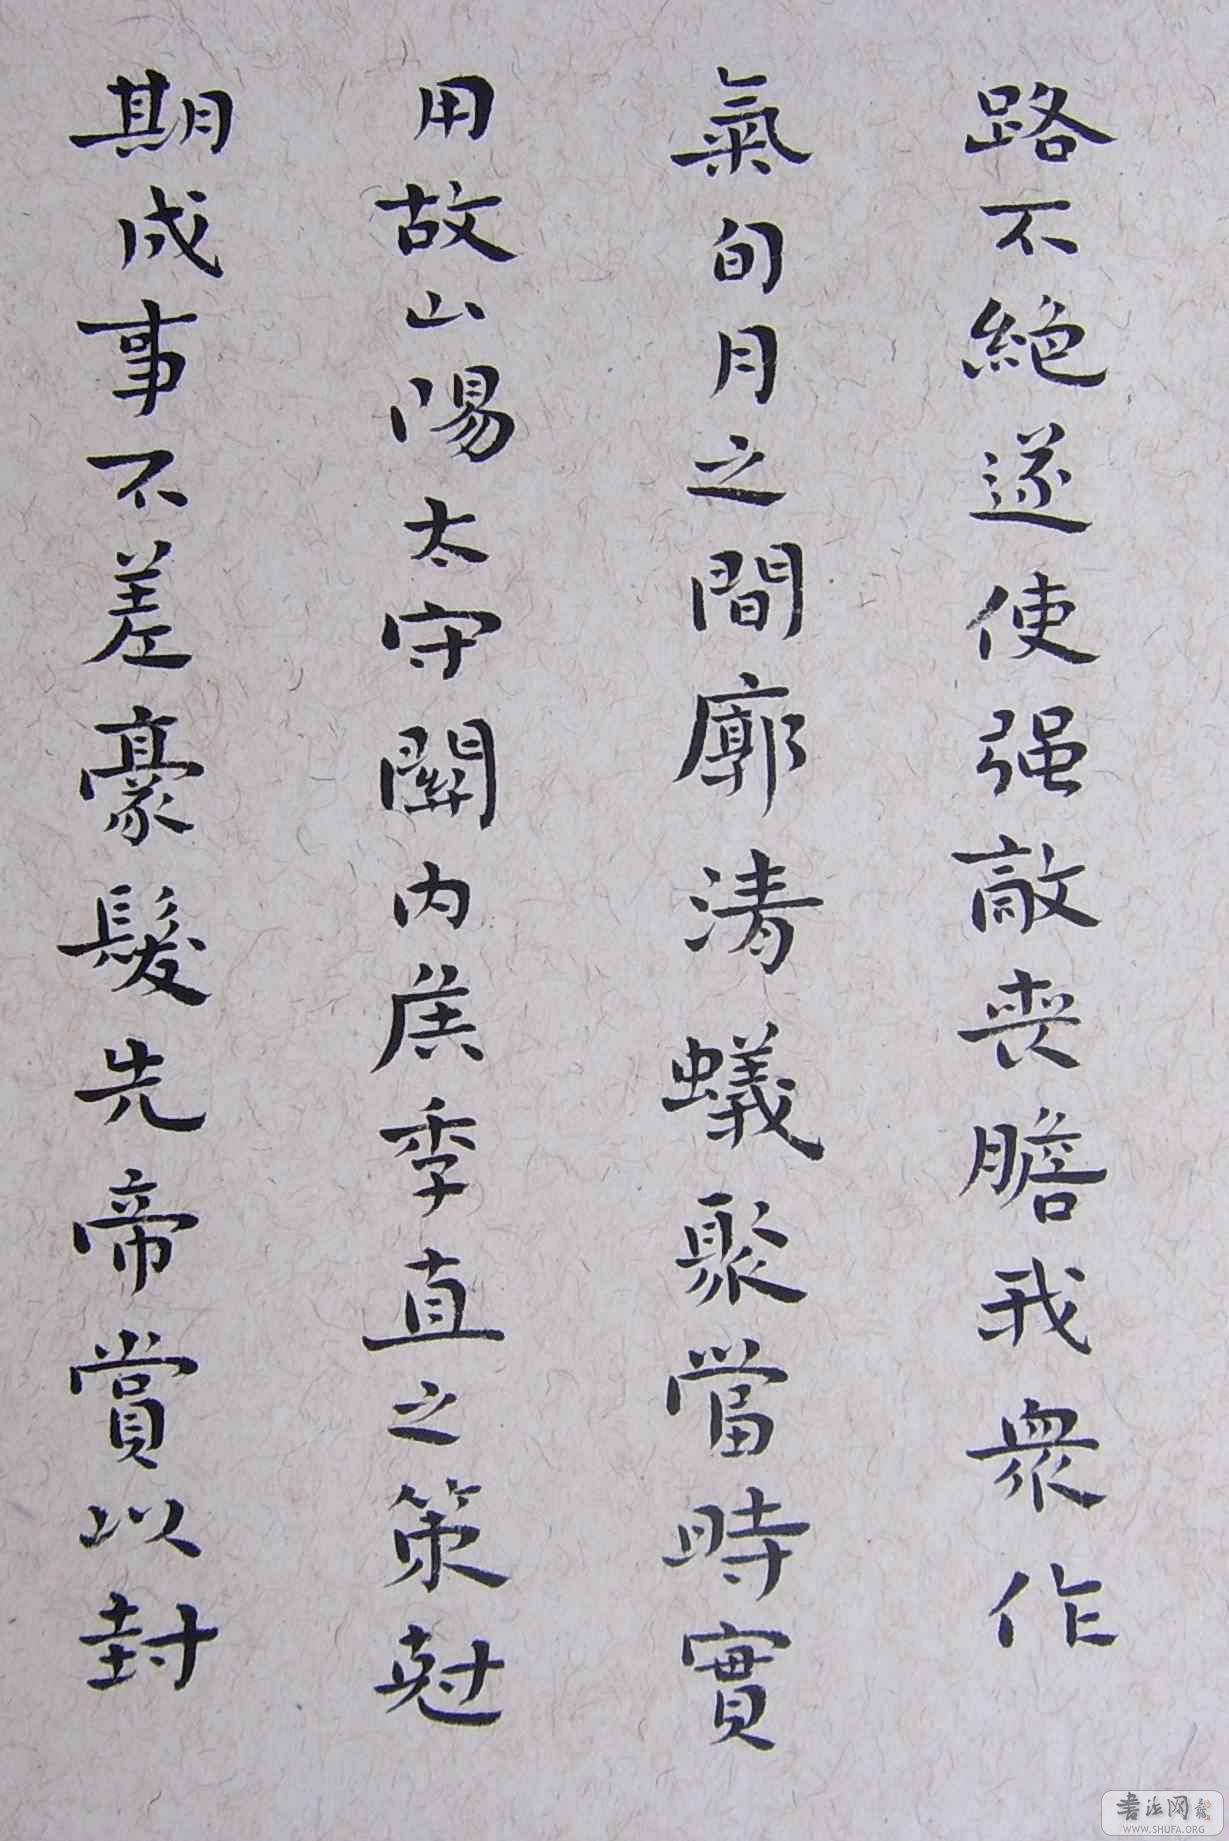 路不絶遂使强敵喪膽我衆作
氣旬月之間廓清蟻聚當時實
用故山陽太守關内侯季直之策尅
期成事不差豪髮先帝賞以封
书法网
WWW.SHUFA.ORG